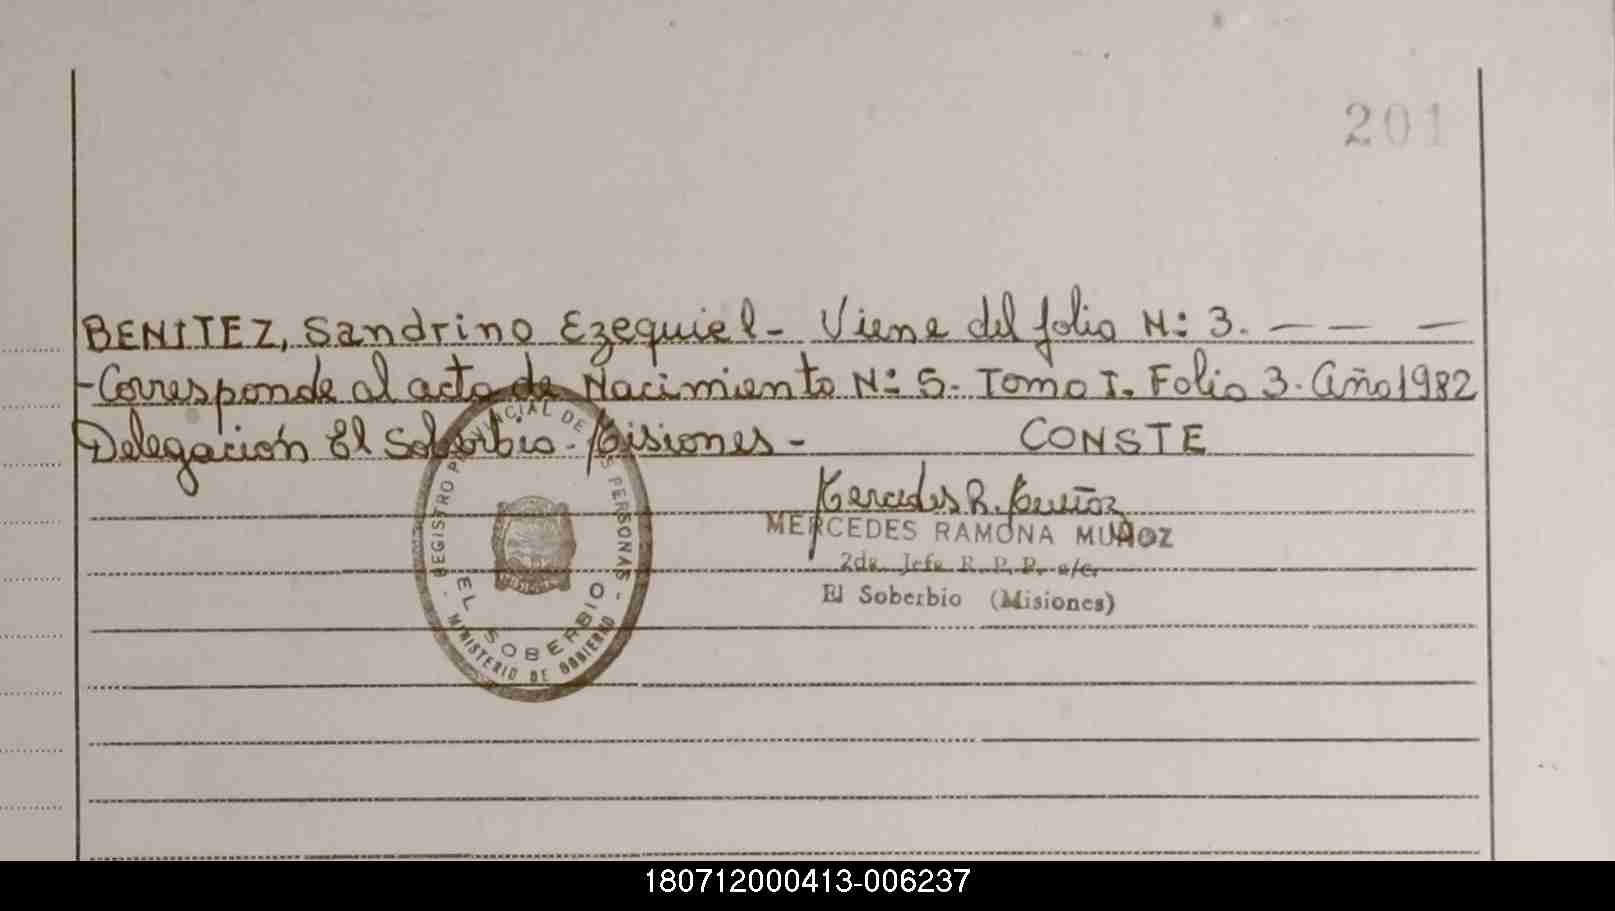 201
BENITEZ, Sandrino Ezequiel - Viene del folio N: 3. — — —
- Corresponde al acta de Nacimiento N: 5 - Tomo I. Folio 3. Año 1982
Delegación El Soberbio - Misiones -
CONSTE
Mercedes R. Muñoz
MERCEDES RAMONA MUÑOZ
2da. Jefe R. P. P. a/c.
El Soberbio (Misiones)
REGISTRO PROVINCIAL DE LAS PERSONAS
EL SOBERBIO
- MINISTERIO DE GOBIERNO -
180712000413-006237